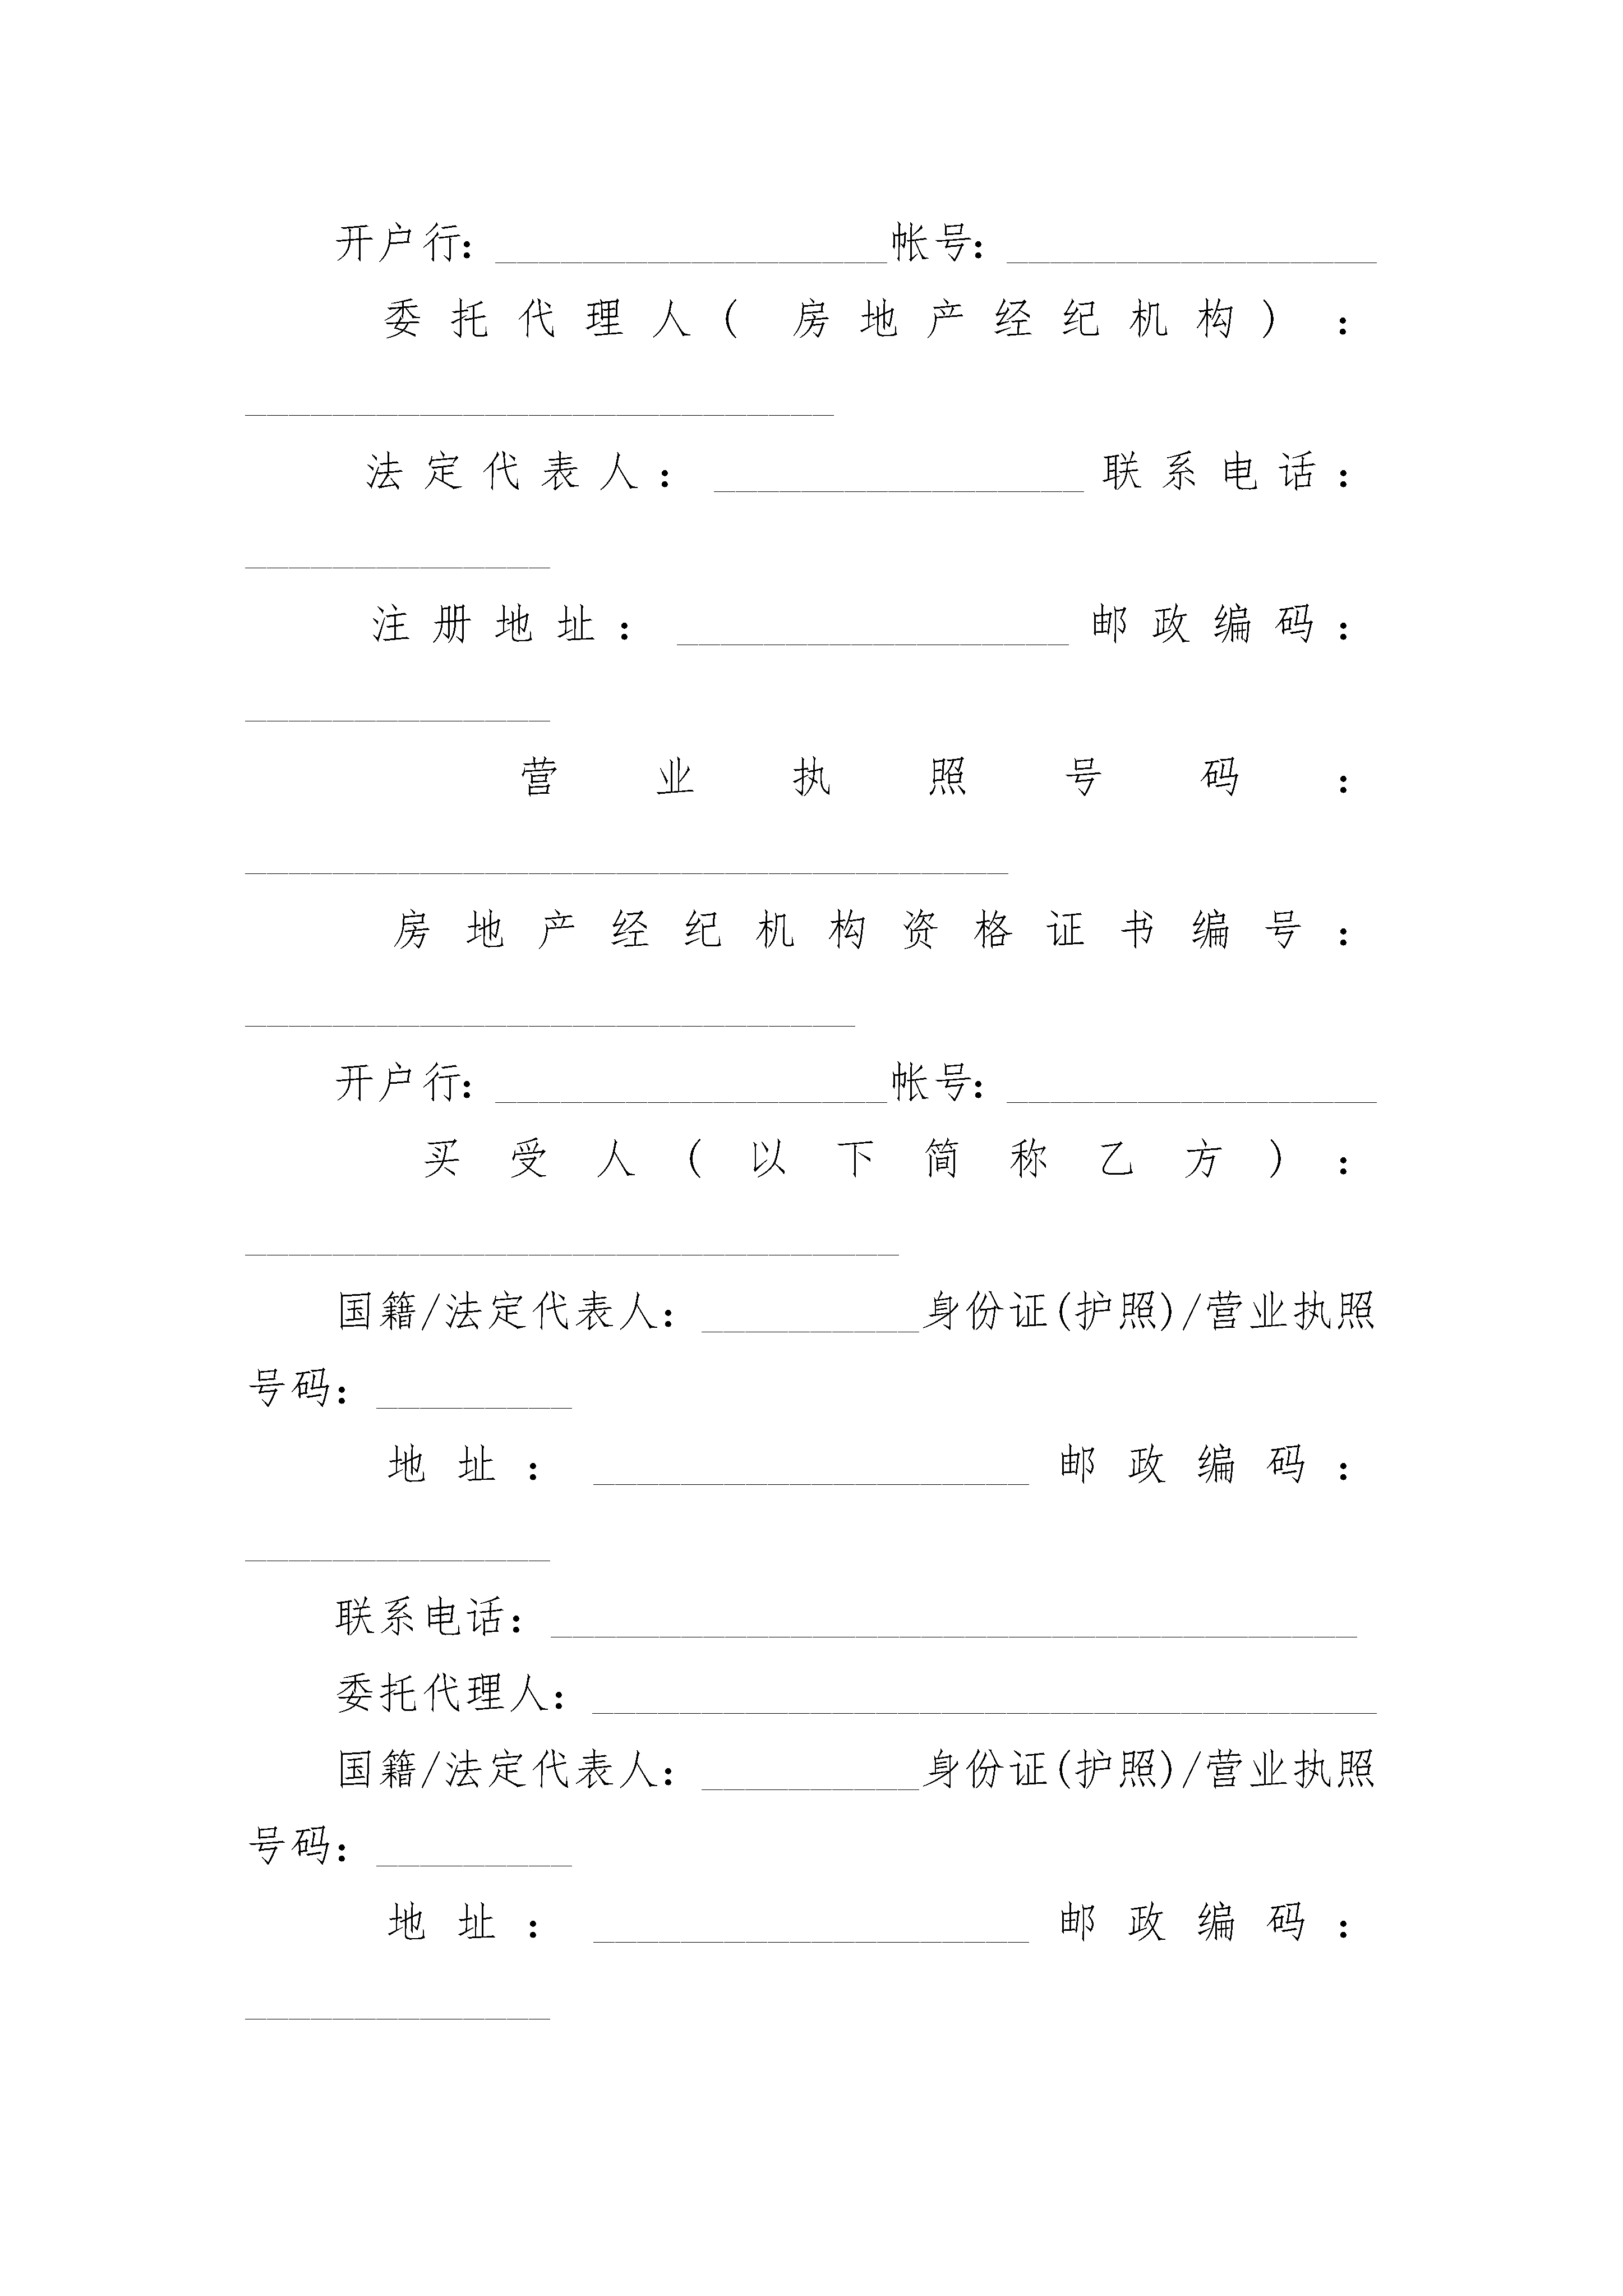 开户行：__________________帐号：_________________
委托代理人(房地产经纪机构)：
___________________________
法定代表人：_________________联系电话：
______________
注册地址：__________________邮政编码：
______________
营业执照号码：
___________________________________
房地产经纪机构资格证书编号：
____________________________
开户行：__________________帐号：_________________
买受人(以下简称乙方)：
______________________________
国籍/法定代表人：__________身份证(护照)/营业执照
号码：_________
地址：____________________邮政编码：
______________
联系电话：_____________________________________
委托代理人：____________________________________
国籍/法定代表人：__________身份证(护照)/营业执照
号码：_________
地址：____________________邮政编码：
______________